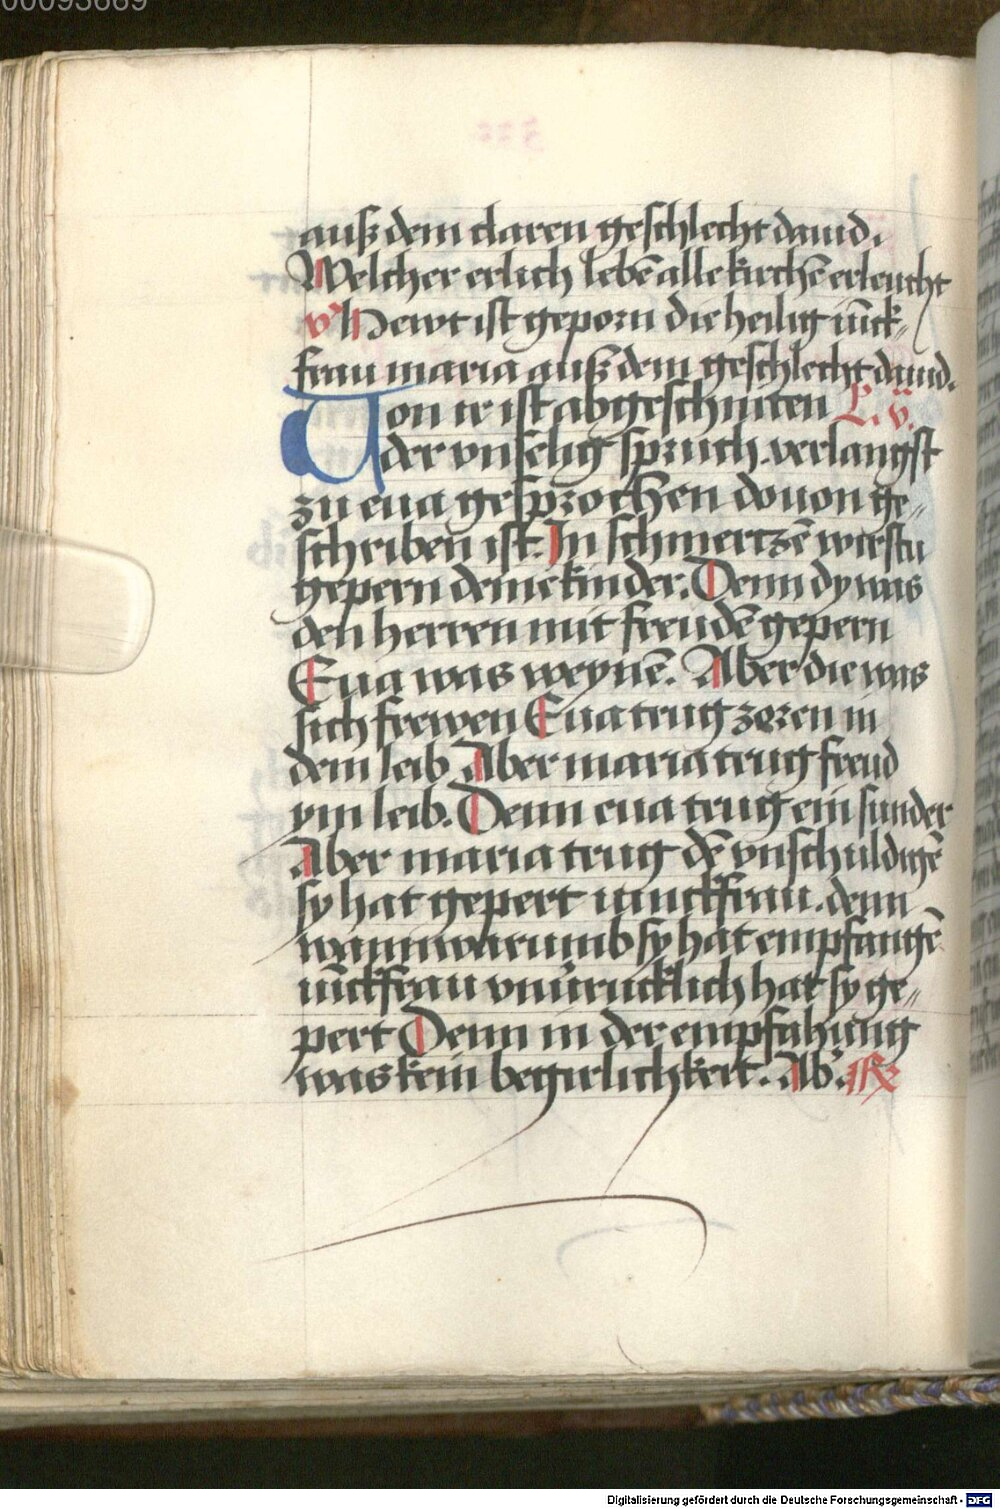 00093669
auß dem claren geschlecht dauid.
Welcher erlich lebē alle kirchē erleucht
v̾ Hewt ist geporn die heilig iūck-
frau maria auß dem geschlecht dauid.
Von ir ist abgeschniten L. v.
der vnselig spruch verlangst
zu eua gesprochen douon ge-
schriben ist. In schmertzē wirstu
gepern deine kinder. Denn dy was
den herren mit freudē gepern
Eua was weynē. Aber die was
sich frewen Eua trug zeren in
dem leib Aber maria trug freud
ym leib. Denn eua trug ein sunder
Aber maria trug dē vnschuldigē
sy hat gepert iunckfrau. denn
wann warumb sy hat empfangē
iūckfrau vnuerucklich hat sy ge-
pert Denn in der empfahung
was kein begirlichkeit. Ab̾.
Digitalisierung gefördert durch die Deutsche Forschungsgemeinschaft - DFG